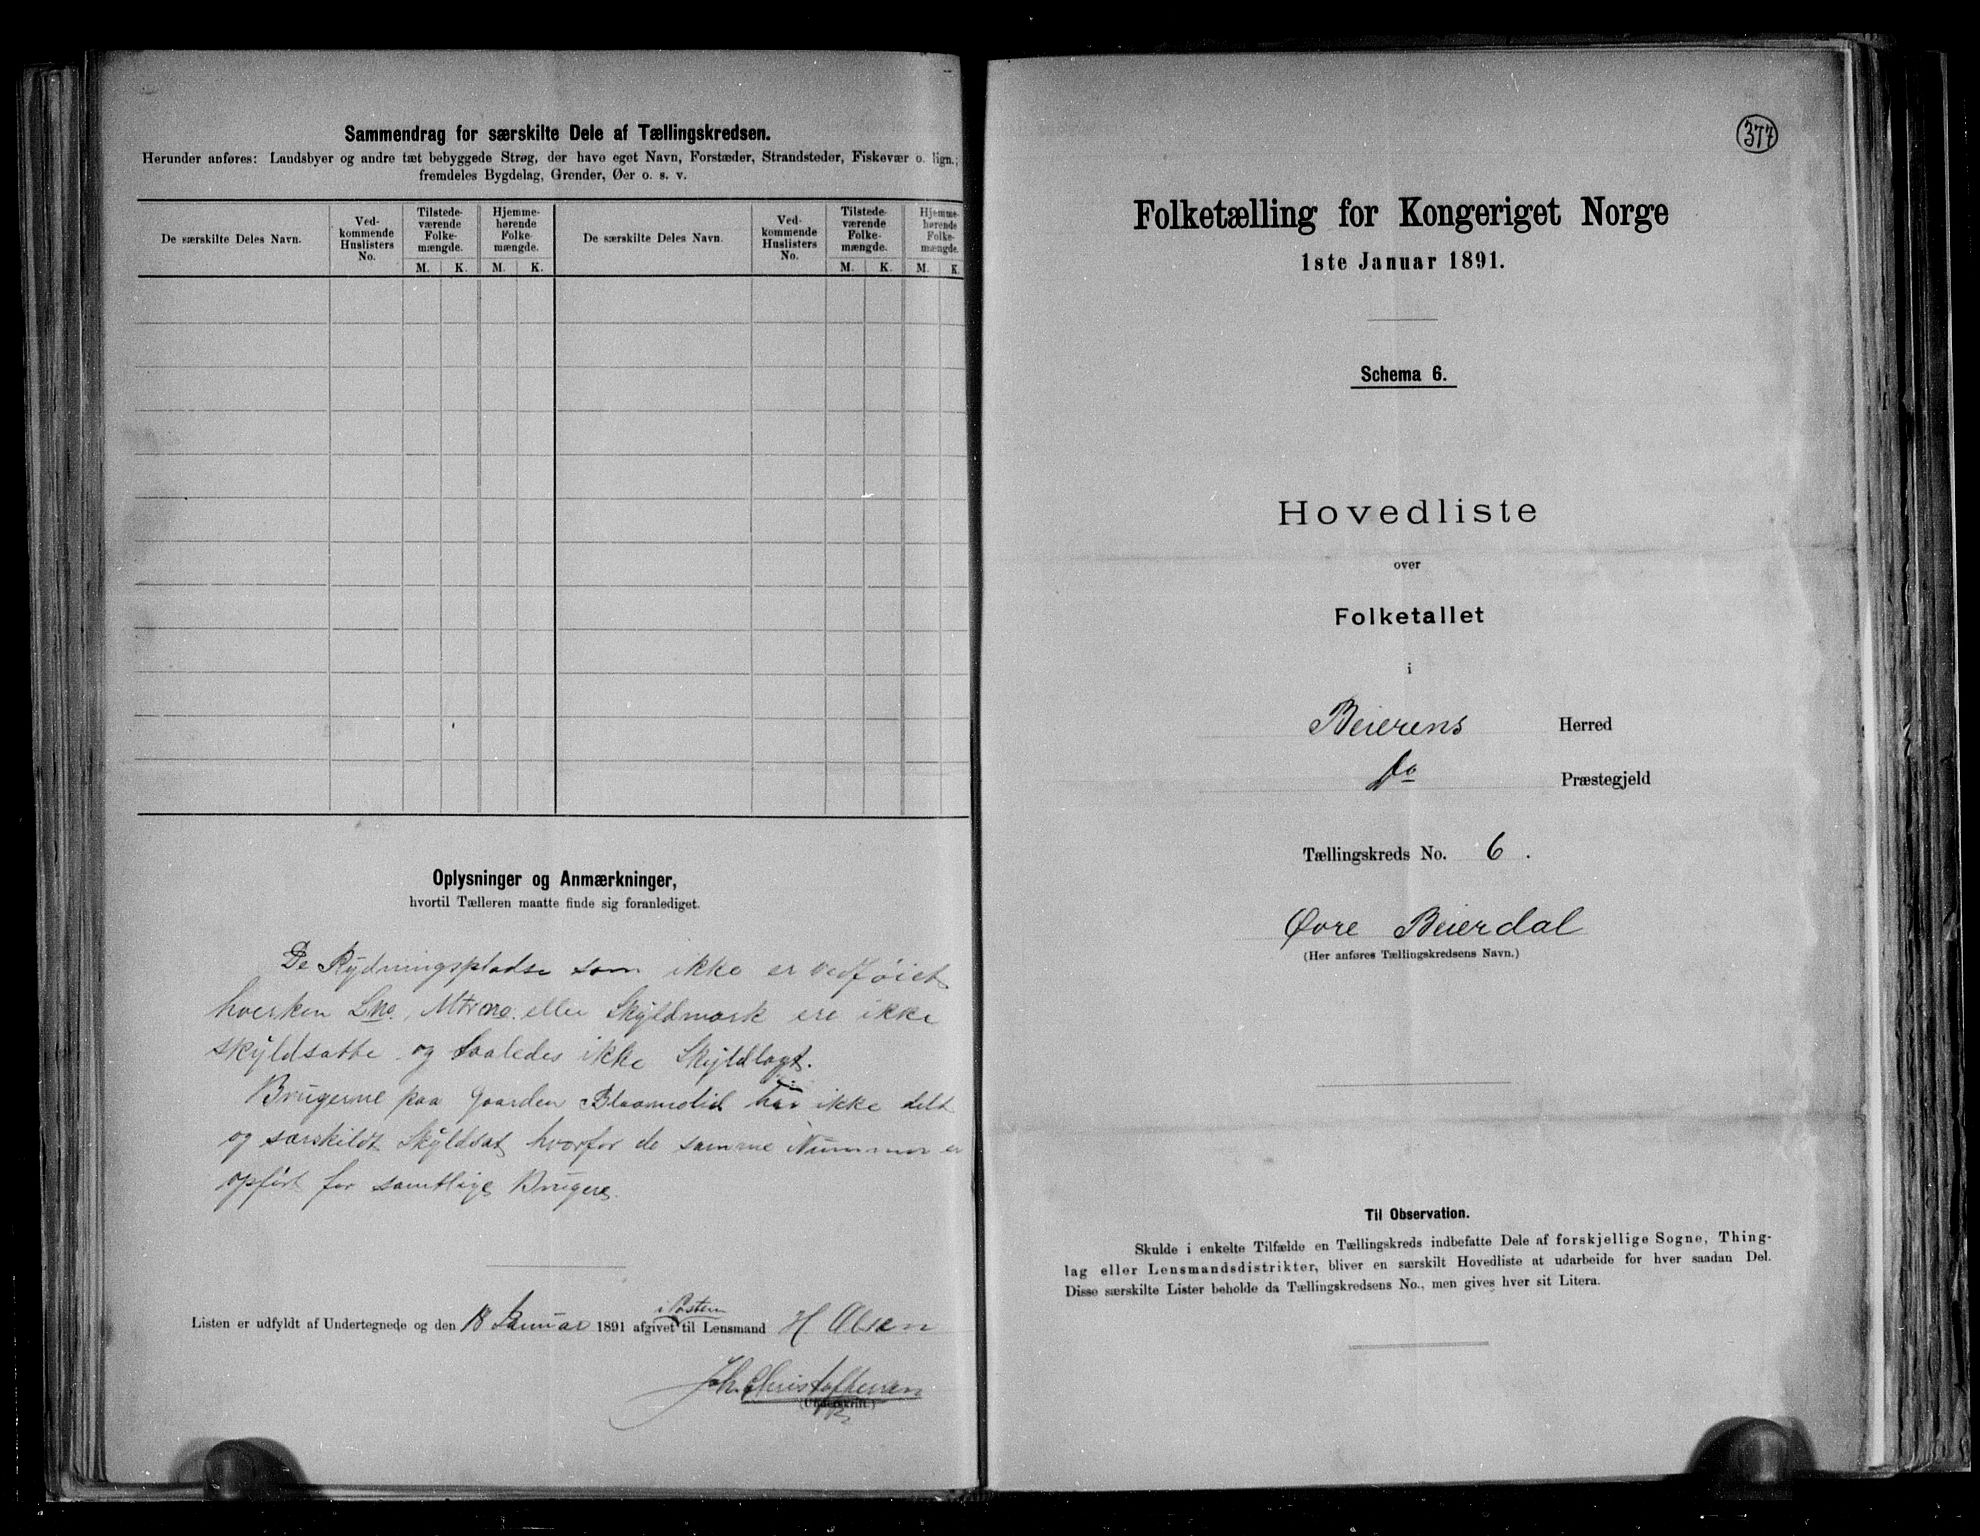 Sammendrag for særskilte Dele af Tællingskredsen.
Herunder anføres: Landsbyer og andre tæt bebyggede Strøg, der have eget Navn, Forstæder, Strandsteder, Fiskevær o. lign.;
fremdeles Bygdelag, Grender, Øer o. s. v.
De særskilte Deles Navn.
Ved-
kommende
Huslisters
No.
Tilstede-
værende
Folke-
mængde.
M. K.
Hjemme-
hørende
Folke-
mængde.
M. K.
De særskilte Deles Navn.
Ved-
kommende
Huslisters
No.
Tilstede-
værende
Folke-
mængde.
M. K.
Hjemme-
hørende
Folke-
mængde.
M. K.
Oplysninger og Anmærkninger,
hvortil Tælleren maatte finde sig foranlediget.
De Rydningspladse som ikke er vedføiet
hverken Lno, Mtrno. eller Skyldmark ere ikke
skyldsatte og saaledes ikke Skyldlagt.
Brugerne paa Gaarden har ikke delt
og særskildt Skyldsat hvorfor de samme Nummer er
opført for samtlige Brugere.
Listen er udfyldt af Undertegnede og den 18 Januar 1891 afgivet i Posten til Lensmand H Olsen
Joh. Christoffersen
(Underskrift.)
377
Folketælling for Kongeriget Norge
1ste Januar 1891.
Schema 6.
Hovedliste
over
Folketallet
i
Beierens Herred
Do Præstegjeld
Tællingskreds No. 6.
Øvre Beierdal
(Her anføres Tællingskredsens Navn.)
Til Observation.
Skulde i enkelte Tilfælde en Tællingskreds indbefatte Dele af forskjellige Sogne, Thing-
lag eller Lensmandsdistrikter, bliver en særskilt Hovedliste at udarbeide for hver saadan Del.
Disse særskilte Lister beholde da Tællingskredsens No., men gives hver sit Litera.